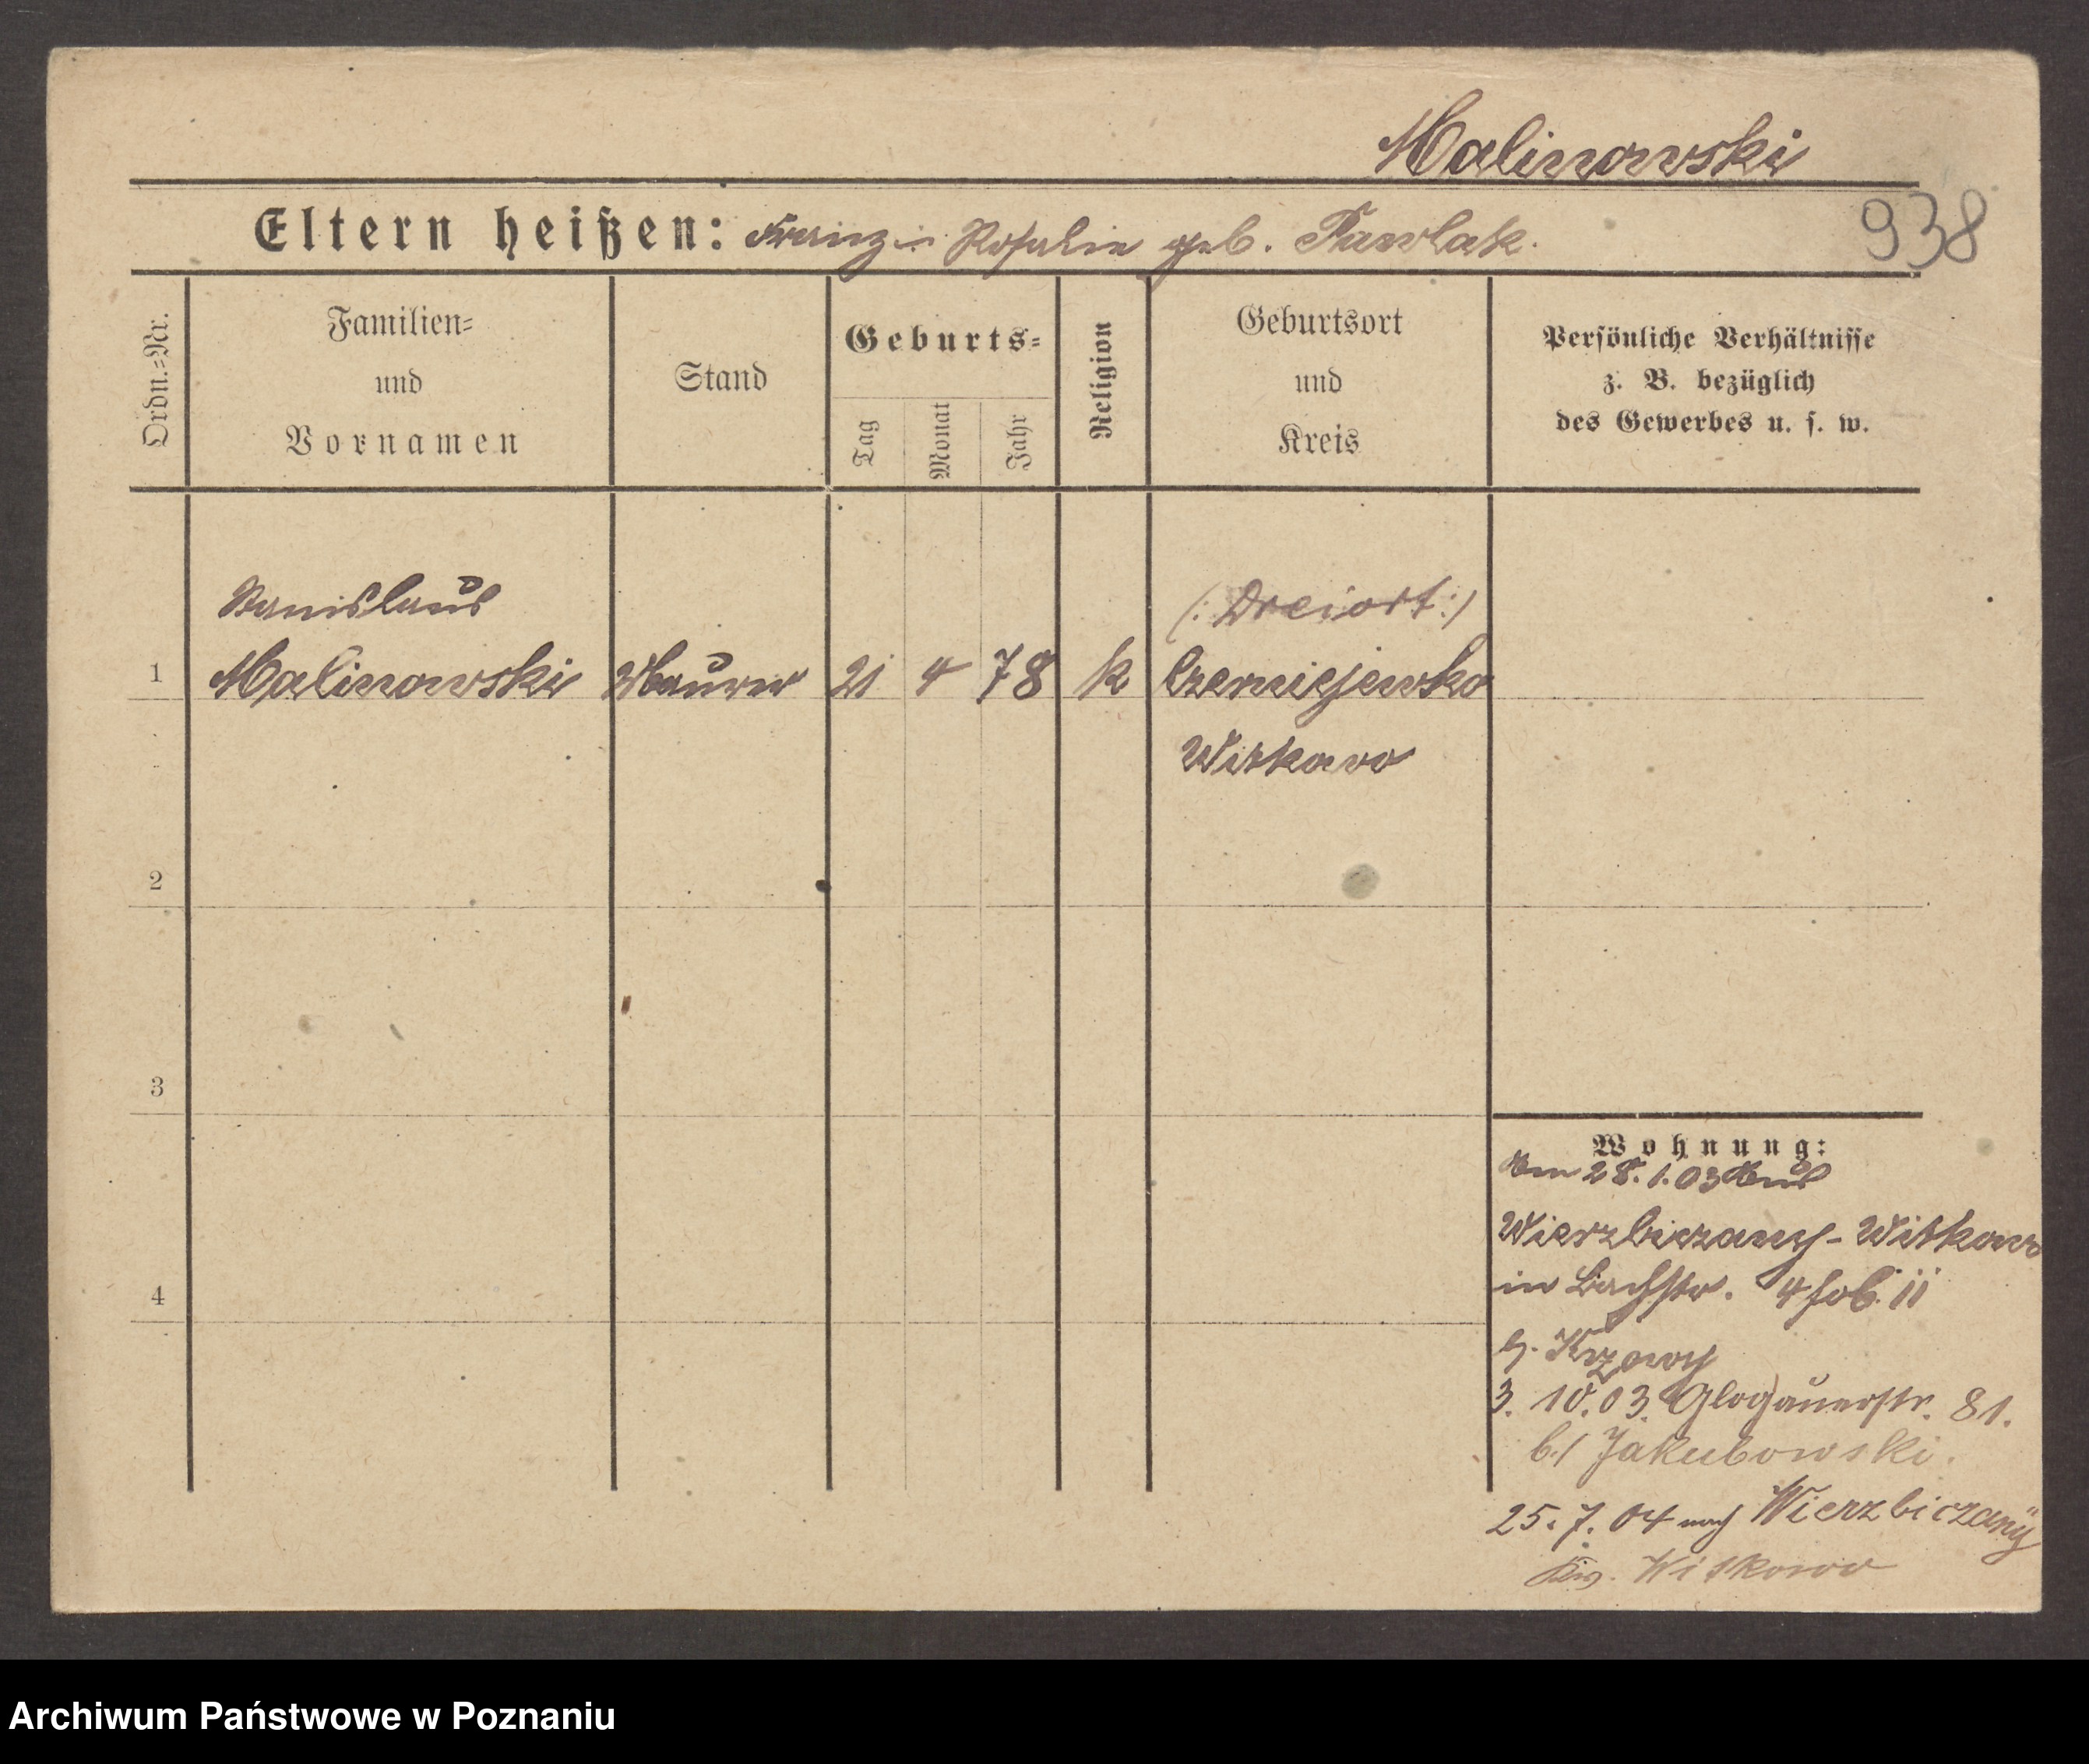 Malinowski
938
Eltern heißen: Franz u. Rosalie geb. Pawlak.
Ordn.=Nr.
Familien=
und
Vornamen
Stand
Geburts=
Tag
Monat
Jahr
Religion
Geburtsort
und
Kreis
Persönliche Verhältnisse
z. B. bezüglich
des Gewerbes u. s. w.
Stanislaus
(: Dreiort :)
1 Malinowski Maurer 21 4 78 k Czerniejewko
Witkowo
2
3
4
Wohnung:
Am 28.1.03 aus
Wierzbiczany - Witkowo
in Bachstr. 4
b. Krzowy
3. 10. 03. Glogauerstr. 81.
b./ Jakubowski.
25. 7. 04 nach Wierzbiczany
Witkowo
Archiwum Państwowe w Poznaniu